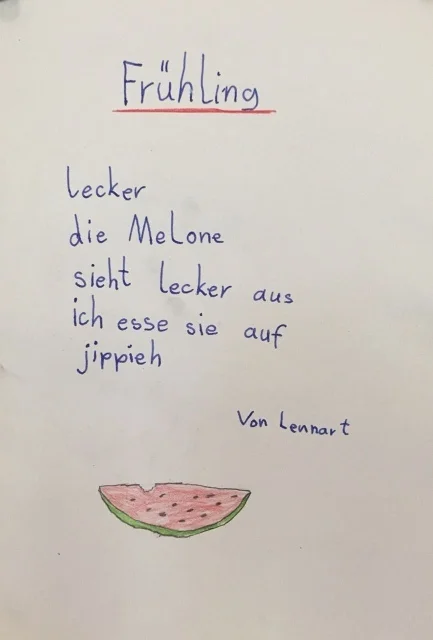 Frühling
lecker
die Melone
sieht lecker aus
ich esse sie auf
jippieh
Von Lennart